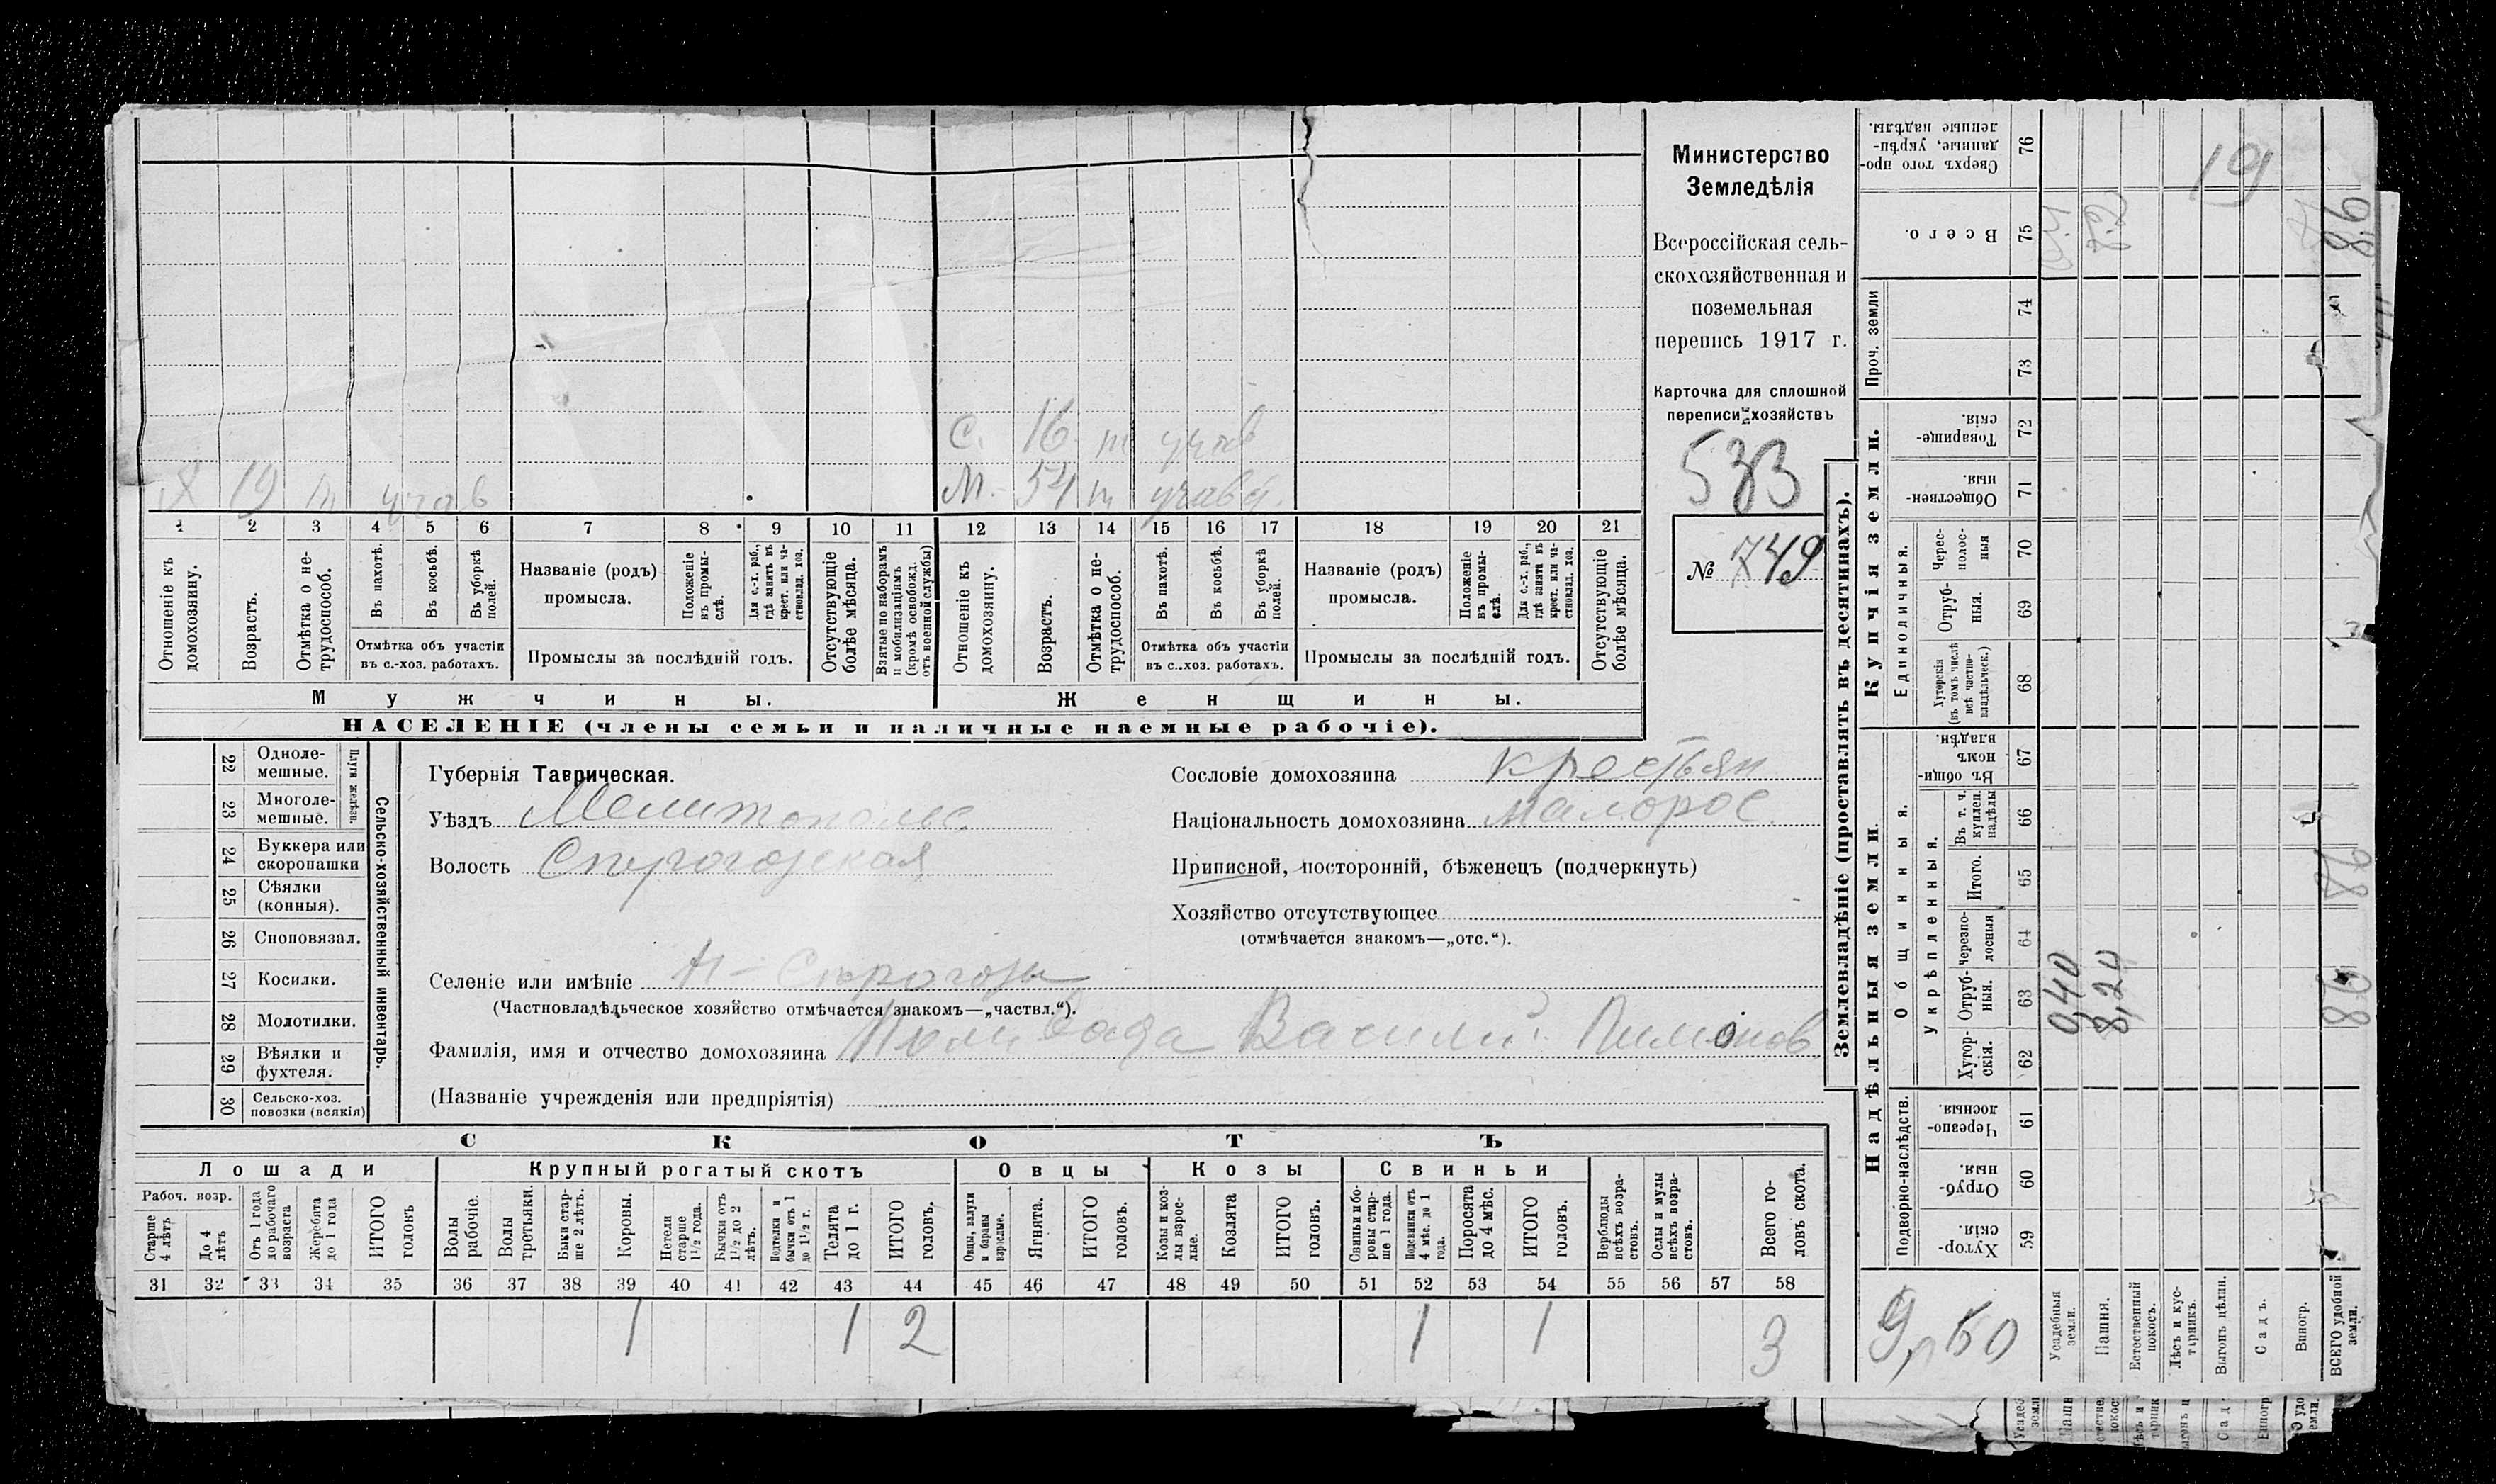 Министерство
Земледѣлія
Всероссійская сель-
скохозяйственная и
поземельная
перепись 1917 г.
Карточка для сплошной
переписи хозяйствъ
533
№ 749
С. 16 т
М. 54 т
Х 19 т
1 2 3 4 5 6 7 8 9 10 11 12 13 14 15 16 17 18 19 20 21
Отношеніе къ домохозяину.
Возрастъ.
Отмѣтка о не-трудоспособ.
Въ пахотѣ.
Въ косьбѣ.
Въ уборкѣ полей.
Отмѣтка объ участіи
въ с.-хоз. работахъ.
Названіе (родъ)
промысла.
Положеніе въ промы-слѣ.
Для с.-х. раб., гдѣ занятъ въ крест. или ча-стновлад. хоз.
Промыслы за послѣдній годъ.
Отсутствующіе болѣе мѣсяца.
Взятые по наборамъ и мобилизаціямъ (кромѣ освобожд. отъ военной службы)
Отношеніе къ домохозяину.
Возрастъ.
Отмѣтка о не-трудоспособ.
Въ пахотѣ.
Въ косьбѣ.
Въ уборкѣ полей.
Отмѣтка объ участіи
въ с.-хоз. работахъ.
Названіе (родъ)
промысла.
Положеніе въ промы-слѣ.
Для с.-х. раб., гдѣ занята въ крест. или ча-стновлад. хоз.
Промыслы за послѣдній годъ.
Отсутствующіе болѣе мѣсяца.
Мужчины.
Женщины.
НАСЕЛЕНІЕ (члены семьи и наличные наемные рабочіе).
Сельско-хозяйственный инвентарь.
Плуги желѣзн.
22 Одноле-мешные.
23 Многоле-мешные.
24 Буккера или скоропашки
25 Сѣялки (конныя).
26 Сноповязал.
27 Косилки.
28 Молотилки.
29 Вѣялки и фухтеля.
30 Сельско-хоз. повозки (всякія)
Губернія Таврическая.
Уѣздъ Мелитопольс.
Волость
Селеніе или имѣніе
(Частновладѣльческое хозяйство отмѣчается знакомъ—„частвл.“).
Фамилія, имя и отчество домохозяина Поливода Василий Пимонов
(Названіе учрежденія или предпріятія)
Сословіе домохозяина крестьян
Національность домохозяина малорос.
Приписной, посторонній, бѣженецъ (подчеркнуть)
Хозяйство отсутствующее
(отмѣчается знакомъ—„отс.“).
СКОТЪ
Лошади
Крупный рогатый скотъ
Овцы
Козы
Свиньи
Рабоч. возр.
Старше 4 лѣтъ
До 4 лѣтъ
Отъ 1 года до рабочаго возраста
Жеребята до 1 года
ИТОГО головъ
Волы рабочіе.
Волы третьяки.
Быки стар-ше 2 лѣтъ.
Коровы.
Нетели старше 1½ года.
Бычки отъ 1½ до 2 лѣтъ.
Подтелки и бычки отъ 1 до 1½ г.
Телята до 1 г.
ИТОГО головъ.
Овцы, валухи и бараны взрослые.
Ягнята.
ИТОГО головъ.
Козы и коз-лы взрос-лые.
Козлята
ИТОГО головъ.
Свиньи и бо-ровы стар-ше 1 года.
Подсвинки отъ 4 мѣс. до 1 года.
Поросята до 4 мѣс.
ИТОГО головъ.
Верблюды всѣхъ возра-стовъ.
Ослы и мулы всѣхъ возра-стовъ.
Всего го-ловъ скота.
31 32 33 34 35 36 37 38 39 40 41 42 43 44 45 46 47 48 49 50 51 52 53 54 55 56 57 58
1 1 2 1 1 3
Землевладѣніе (проставлять въ десятинахъ).
Надѣльныя земли.
Купчія земли.
Проч. земли
Подворно-наслѣдств.
Общинныя.
Укрѣпленныя.
Единоличныя.
59 Хутор-скія.
60 Отруб-ныя.
61 Черезпо-лосныя.
62 Хутор-скія.
63 Отруб-ныя.
64 Черезпо-лосныя
65 Итого.
66 Въ т. ч. куплен. надѣлы
67 Въ общин-номъ владѣн.
68 Хуторскія (въ томъ числѣ всѣ частно-владѣльческ.)
69 Отруб-ныя.
70 Черес-полос-ныя
71 Обществен-ныя.
72 Товарище-скія.
73
74
75 Всего.
76 Сверхъ того про-данные, укрѣп-ленные надѣлы.
Усадебныя земли.
Пашня.
Естественный покосъ.
Лѣсъ и кус-тарникъ.
Выгонъ цѣлин.
Садъ.
Виногр.
ВСЕГО удобной земли.
0,40
8,20
19